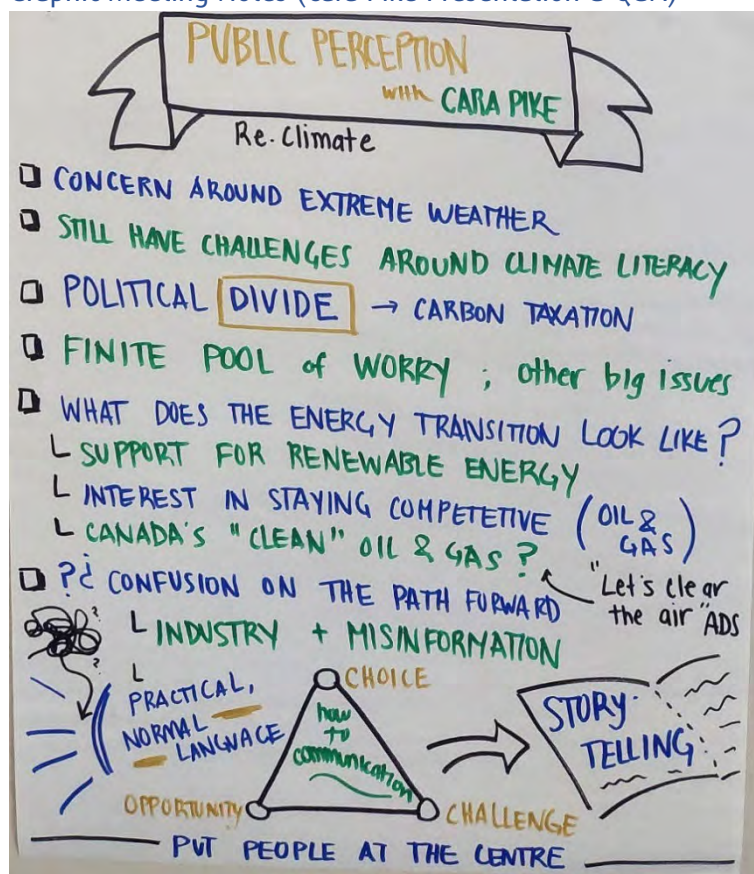 Graphic Meeting Notes (Cara Pike Presentation & Q&A)
PUBLIC PERCEPTION
with CARA PIKE
Re.Climate
CONCERN AROUND EXTREME WEATHER
STILL HAVE CHALLENGES AROUND CLIMATE LITERACY
POLITICAL DIVIDE → CARBON TAXATION
FINITE POOL of WORRY ; other big issues
WHAT DOES THE ENERGY TRANSITION LOOK LIKE?
SUPPORT FOR RENEWABLE ENERGY
INTEREST IN STAYING COMPETETIVE (OIL &
GAS)
CANADA'S "CLEAN" OIL & GAS?
"Let's clear
the air" ADS
?¿ CONFUSION ON THE PATH FORWARD
INDUSTRY + MISINFORMATION
PRACTICAL,
NORMAL
LANGUAGE
CHOICE
how
to
communication
OPPORTUNITY
CHALLENGE
STORY-
TELLING
PUT PEOPLE AT THE CENTRE